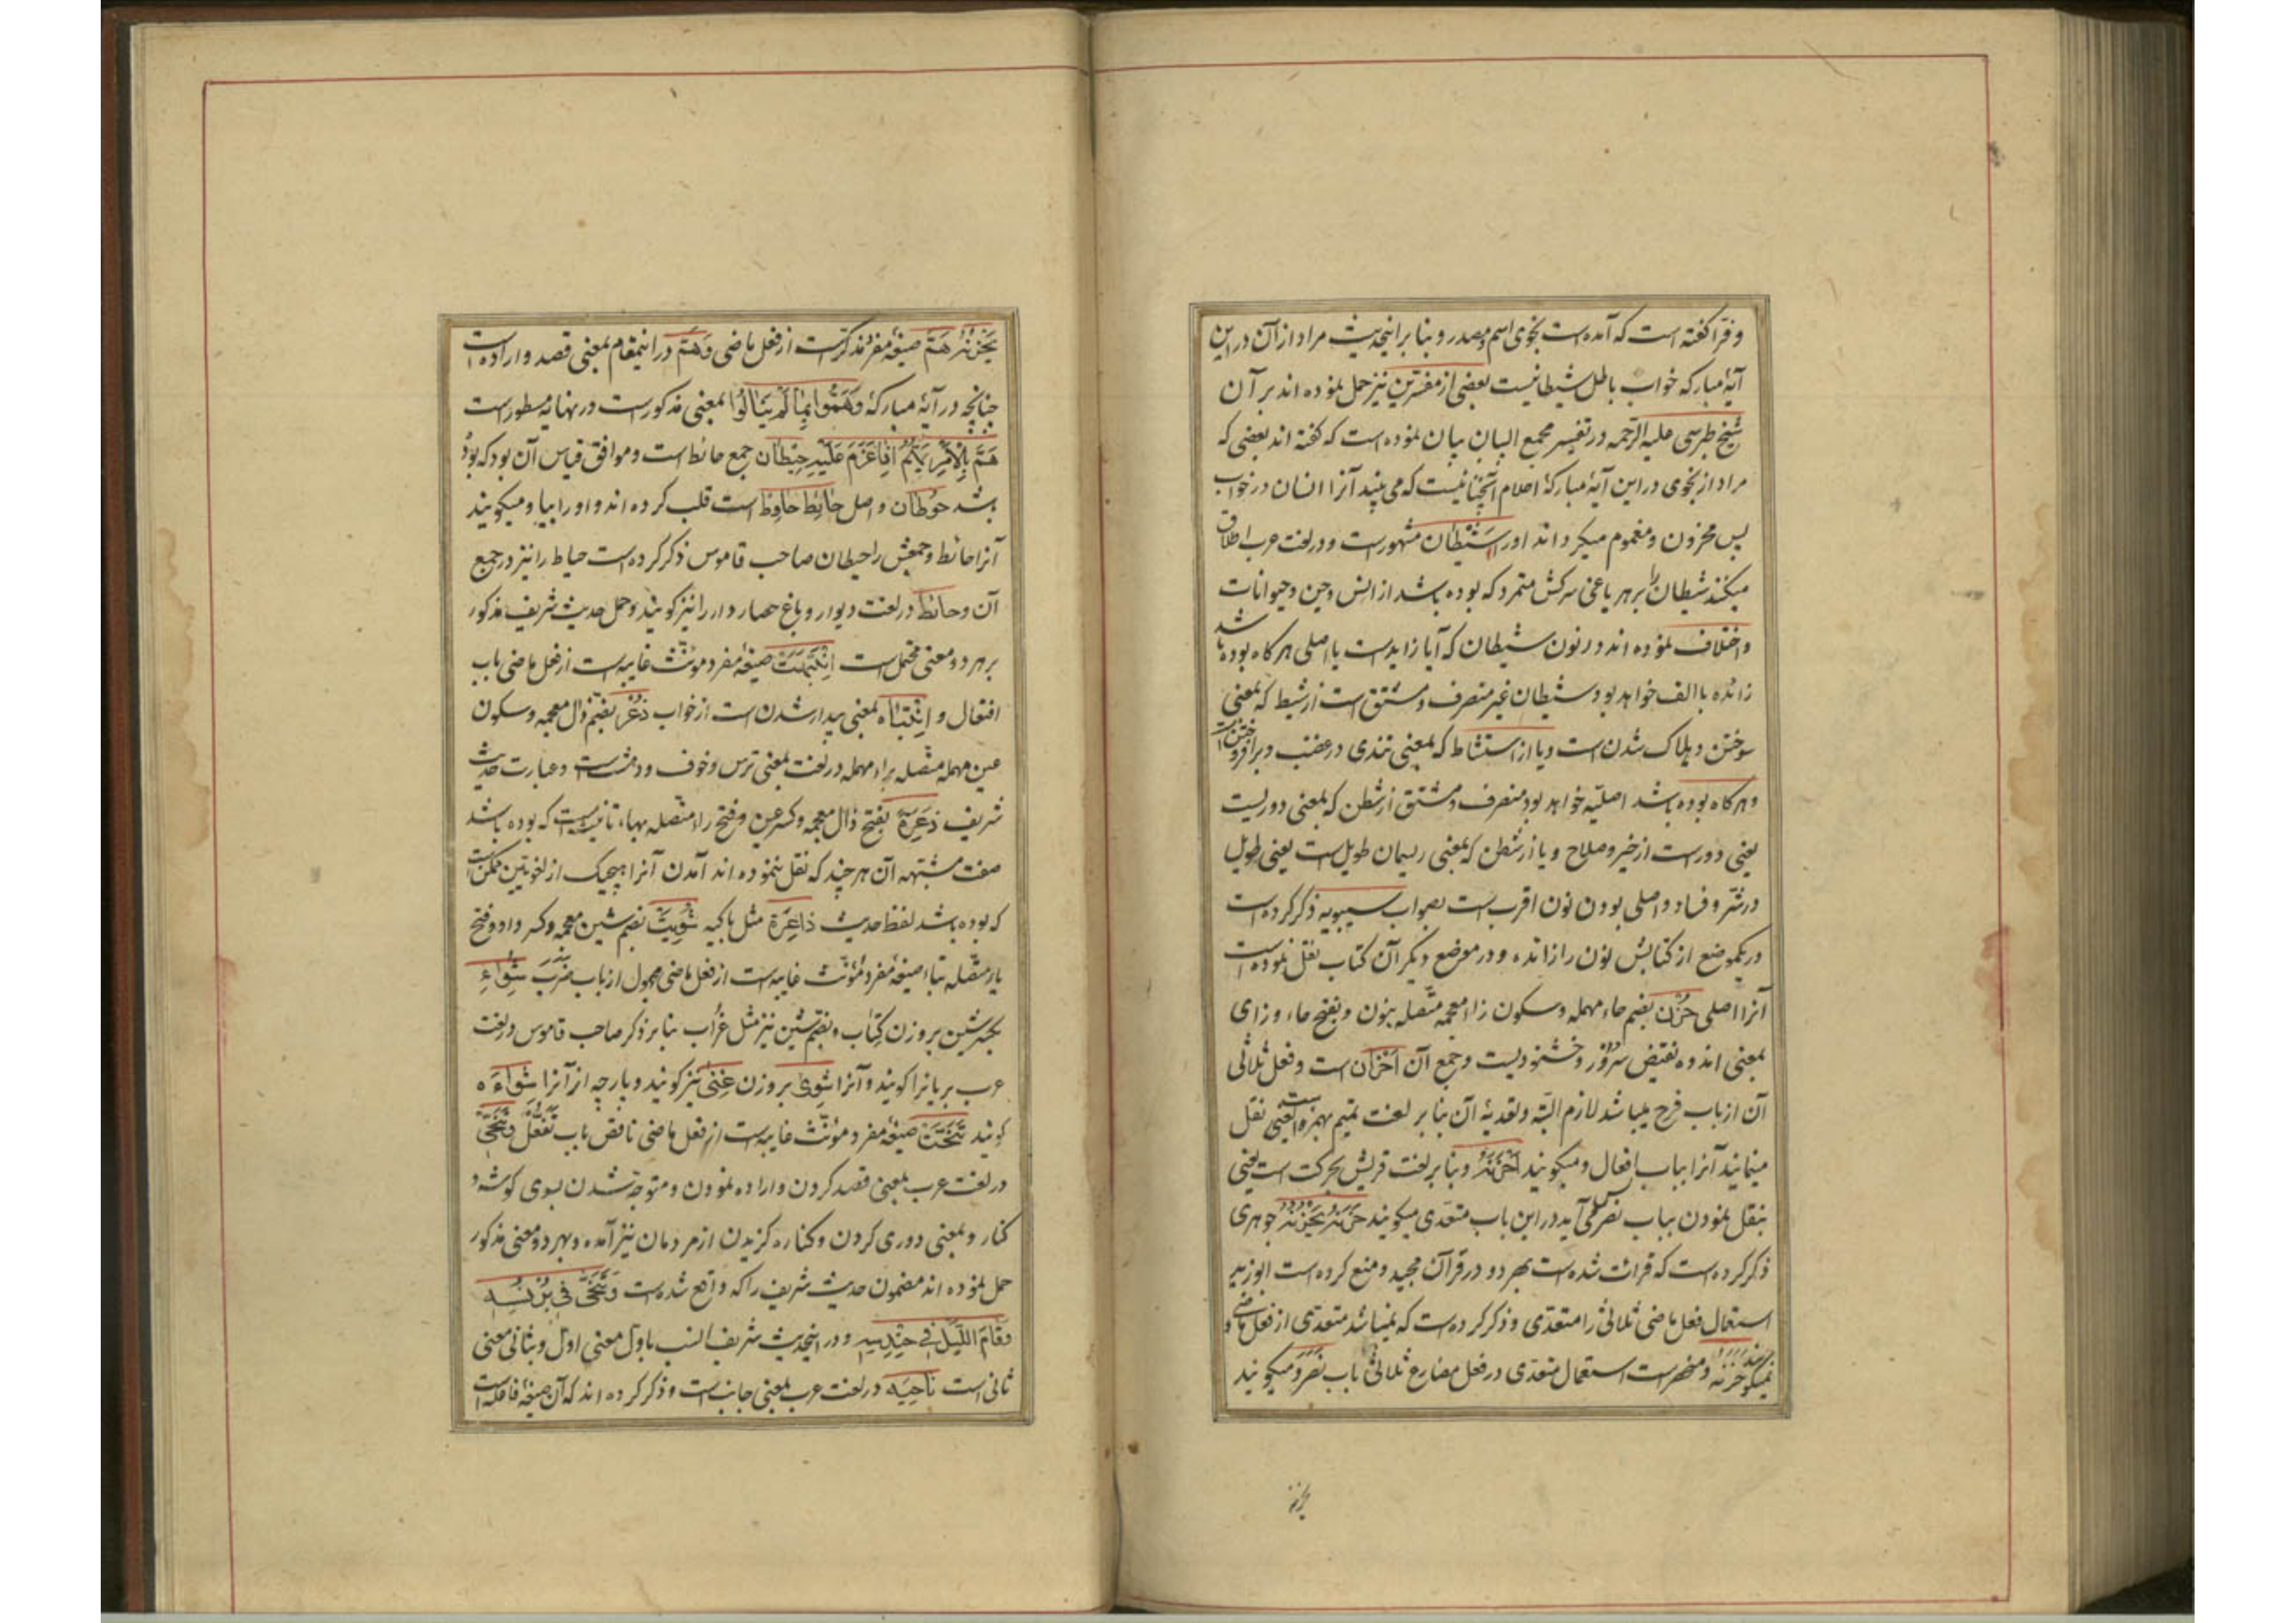 و فرّا گفته است که آمده است نجوی اسم و مصدر و بنا بر اینحدیث مراد از آن در این
آیهٔ مبارکه خواب باطل شیطانیست بعضی از مفسّرین نیز حمل نموده اند بر آن
شیخ طبرسی علیه الرّحمه در تفسیر مجمع البیان بیان نموده است که گفته اند بعضی که
مراد از نجوی در این آیهٔ مبارکهٔ احلام آنچنانیست که می بیند آنرا انسان در خواب
پس محزون و مغموم میگرداند او را شَیْطان مشهور است و در لغت عرب اطلاق
میکنند شیطان را بر هر یاغی سرکش متمرد که بوده باشد از انس و جن و حیوانات
و اختلاف نموده اند در نون شیطان که آیا زاید است یا اصلی هر گاه بوده باشد
زائده با الف خواهد بود شیطان غیر منصرف و مشتق است از شیط که بمعنی
سوختن و هلاک شدن است و یا از استشاط که بمعنی تندی در غضب و برافروختن است
و هر گاه بوده باشد اصلیّه خواهد بود منصرف و مشتق از شطن که بمعنی دوریست
یعنی دور است از خیر و صلاح و یا از شطن که بمعنی ریسمان طویل است یعنی طویل
در شر و فساد و اصلی بودن نون اقرب است بصواب سیبویه ذکر کرده است
در یکموضع از کتابش نون را زائده و در موضع دیگر آن کتاب نقل نموده است
آنرا اصلی حُزْن بضم حاء مهمله و سکون زاء معجمه متّصله بنون و بفتح حاء و زای
بمعنی اندوه نقیض سرور و خشنودیست و جمع آن اَحْزان است و فعل ثلاثی
آن از باب فرح میباشد لازم البتّه و تعدیهٔ آن بنا بر لغت تمیم بهمزه است یعنی نقل
مینمایند آنرا بباب افعال و میگویند اَحْزَنَهُ و بنا بر لغت قریش بحرکت است یعنی
بنقل نمودن بباب نصر پس می آید در این باب متعدی میگویند حَزَنَهُ یَحْزُنُهُ جوهری
ذکر کرده است که قرائت شده است بهر دو در قرآن مجید و منع کرده است ابوزید
استعمال فعل ماضی ثلاثی را متعدّی و ذکر کرده است که نمیباشد متعدّی از فعل ماضی و
نمیگویند حَزَنَهُ و منحصر است استعمال متعدّی در فعل مضارع ثلاثی باب نصر و میگویند
یحزنه
یَحْزُنُهُ هَمَّ صیغهٔ مفرد مذکر است از فعل ماضی وَ هَمّ در اینمقام بمعنی قصد و اراده است
چنانچه در آیهٔ مبارکهٔ وَهَمُّوا بِمٰا لَمْ یَنٰالُوا بمعنی مذکور است در نهایه مسطور است
هَمَّ بِالْاَمْرِ یَهُمُّ اِذٰا عَزَمَ عَلَیْهِ حِیطٰان جمع حائط است و موافق قیاس آن بود که بوده
باشد حُوطٰان و اصل حٰائِط حٰاوِط است قلب کرده اند واو را بیا و میگویند
آنرا حائط و جمعش را حیطان صاحب قاموس ذکر کرده است حیاط را نیز در جمع
آن و حائط در لغت دیوار و باغ حصاردار را نیز گویند و حمل حدیث شریف مذکور
بر هر دو معنی محتمل است اِنْتَبَهَتْ صیغهٔ مفرد مونّث غایبه است از فعل ماضی باب
افتعال و اِنْتِبٰاه بمعنی بیدار شدن است از خواب ذُعْر بضمّ ذال معجمه و سکون
عین مهمله متّصله براء مهمله در لغت بمعنی ترس و خوف و دهشت است و عبارت حدیث
شریف ذَعِرَة بفتح ذال معجمه و کسر عین و فتح راء متّصله بهاء تانیثیست که بوده باشد
صفت مشبّهه آن هر چند که نقل ننموده اند آمدن آنرا هیچیک از لغویین ممکن است
که بوده باشد لفظ حدیث ذاعِرَة مثل باکیه شُوِیَتْ بضم شین معجمه و کسر واو و فتح
یاء متّصله بتاء صیغهٔ مفرد مؤنّث غایبه است از فعل ماضی مجهول از باب ضَرَبَ شِوٰاء
بکسر شین بر وزن کِتٰاب و بضم شین نیز مثل غُرٰاب بنا بر ذکر صاحب قاموس در لغت
عرب بریانرا گویند و آنرا شَوِیّ بر وزن غَنِیّ نیز گویند و پارچه از آنرا شِوٰاءَه
گویند تَنَحَّتْ صیغهٔ مفرد مونّث غایبه است از فعل ماضی ناقص باب تَفَعُّل و تَنَحّی
در لغت عرب بمعنی قصد کردن و اراده نمودن و متوجّه شدن بسوی گوشه و
کنار و بمعنی دوری کردن و کناره گزیدن از مردمان نیز آمده و بهر دو معنی مذکور
حمل نموده اند مضمون حدیث شریف را که واقع شده است وَ تَنَحّٰی فی بُرْنُسِهِ
وَ قٰامَ اللَّیْلَ فی حِنْدِسِهِ و در اینحدیث شریف انسب باوّل معنی اوّل و بثانی معنی
ثانی است نٰاحِیَه در لغت عرب بمعنی جانب است و ذکر کرده اند که آن صیغهٔ فاعله است